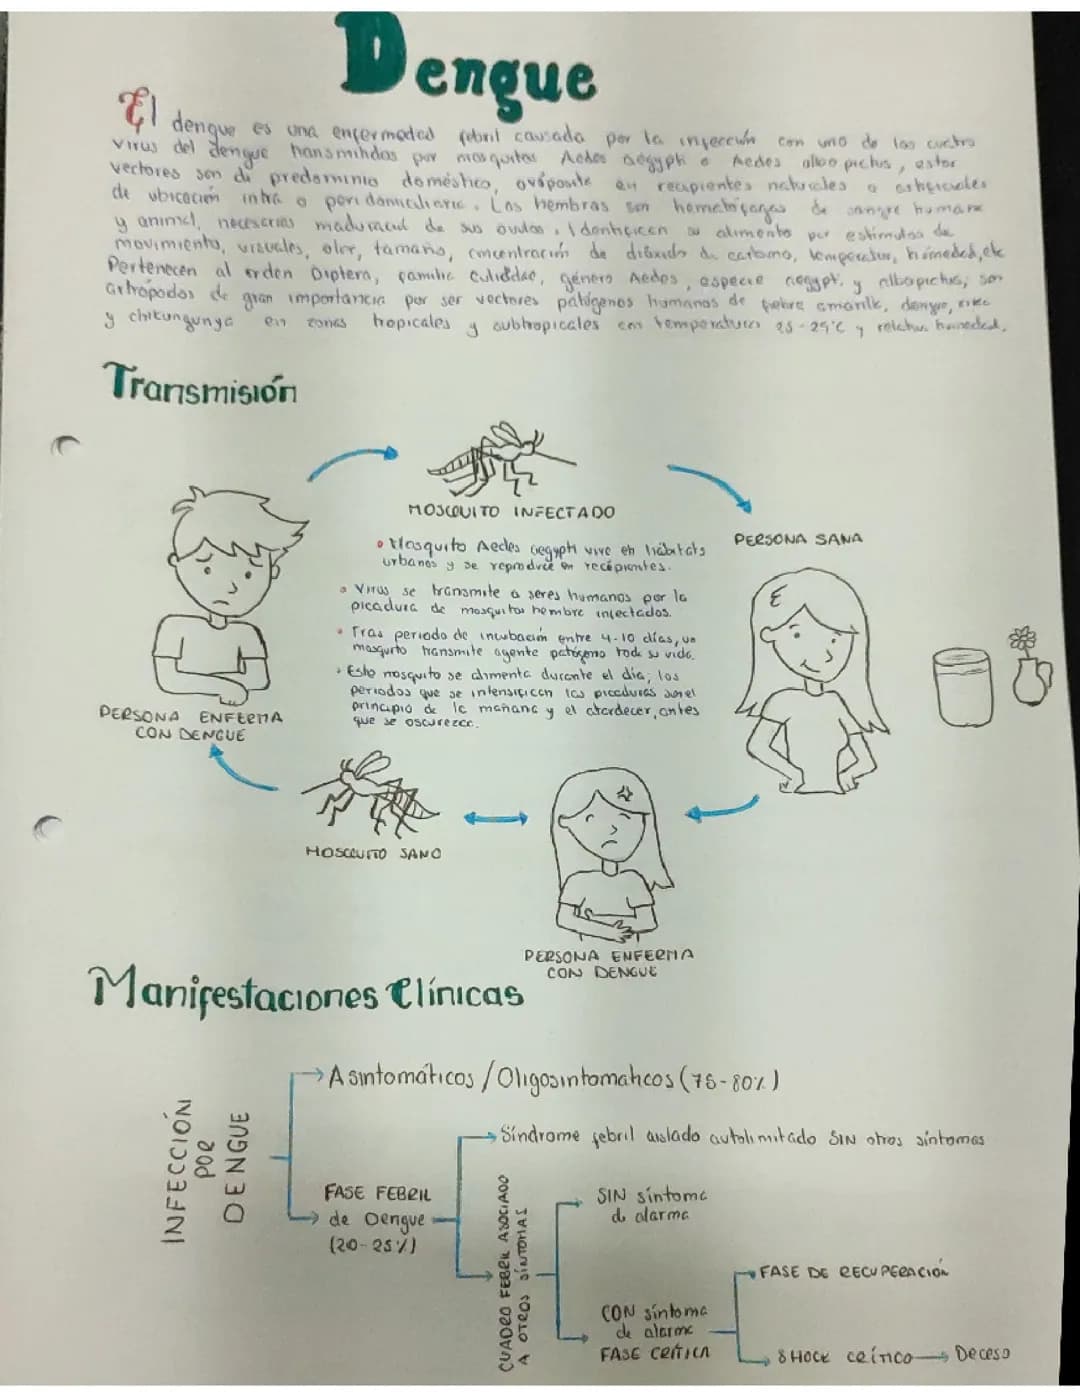 Dengue
El dengue es una enfermedad febril causada por la infección con uno de los cuatro
virus del dengue transmitidas por mosquitos Aedes aegypti o Aedes albopictus, estos
vectores son de predominio doméstico, ovoposita en recipientes naturales o artificiales
de ubicación intra o peridomiciliaria. Las hembras son hematófagas de sangre humana
y animal, necesarias maduración de sus óvulos. Identifican su alimento por estímulos de
movimiento, visuales, olor, tamaño, concentración de dióxido de carbono, temperatura, húmedad, etc
Pertenecen al orden Diptera, familia Culididae, género Aedes, especie aegypti y albopictus; son
artrópodos de gran importancia por ser vectores patógenos humanos de fiebre amarilla, dengue, zika
y chikungunya en zonas tropicales y subtropicales con temperaturas 25-29°C y relativa humedad.
Transmisión
MOSQUITO INFECTADO
PERSONA SANA
• Mosquito Aedes aegypti vive en hábitats
urbanos y se reproduce en recipientes.
• Virus se transmite a seres humanos por la
picadura de mosquitos hembra infectados.
• Tras periodo de incubación entre 4-10 días, un
mosquito transmite agente patógeno toda su vida.
• Este mosquito se alimenta durante el día; los
periodos que se intensifican las picaduras son el
principio de la mañana y el atardecer, antes
que se oscurezca.
PERSONA ENFERMA
CON DENGUE
MOSQUITO SANO
PERSONA ENFERMA
CON DENGUE
Manifestaciones Clínicas
INFECCIÓN
POR
DENGUE
Asintomáticos / Oligosintomaticos (75-80%)
FASE FEBRIL
de Dengue
(20-25%)
Síndrome febril aislado autolimitado SIN otros síntomas
CUADRO FEBRIL ASOCIADO
A OTROS SÍNTOMAS
SIN síntoma
de alarma
CON síntoma
de alarma
FASE CRÍTICA
FASE DE RECUPERACIÓN
SHOCK CRÍTICO → Deceso